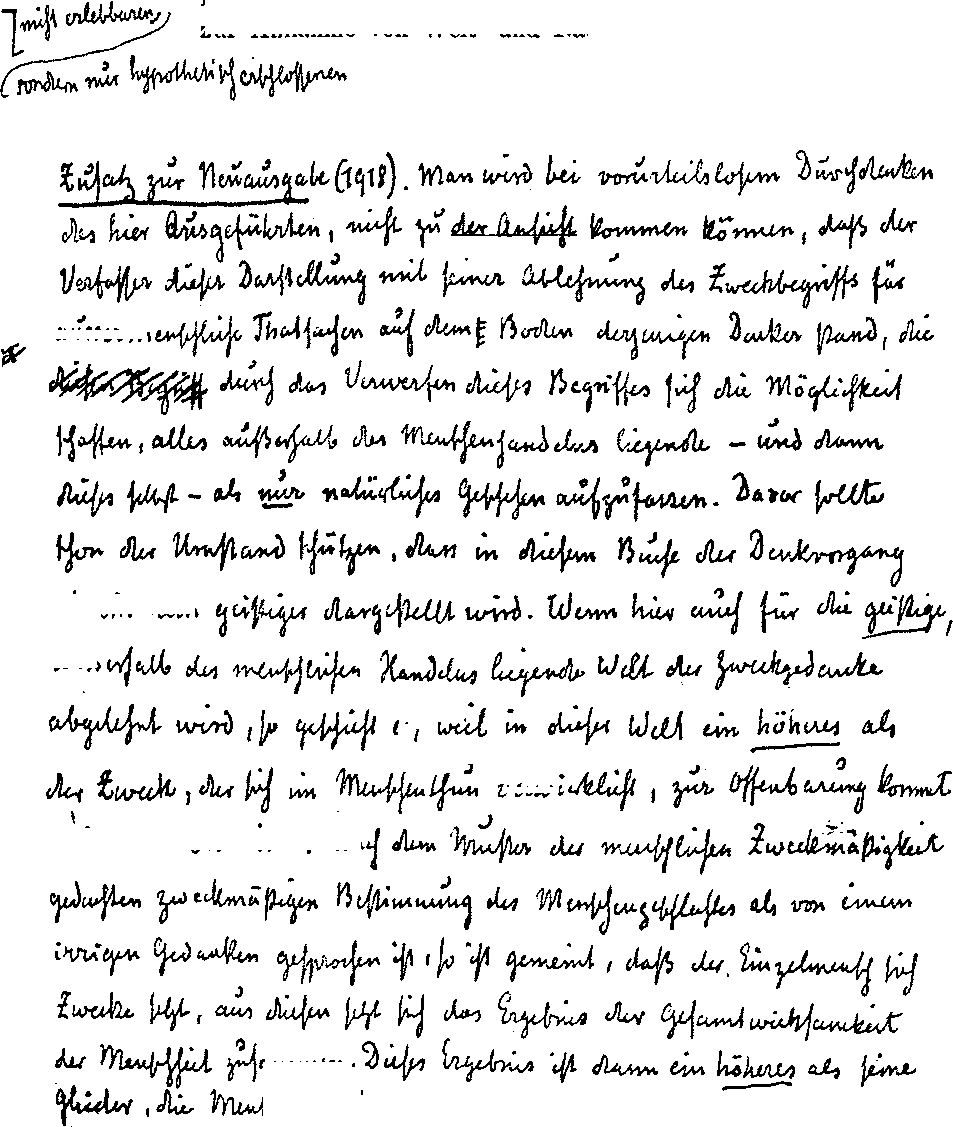 nicht erlebbaren,
sondern nur hypothetisch erschlossenen
Zusatz zur Neuausgabe (1918). Man wird bei vorurteilslosem Durchdenken
des hier Ausgeführten, nicht zu der Ansicht kommen können, daß der
Verfasser dieser Darstellung mit seiner Ablehnung des Zweckbegriffs für
menschliche Thatsachen auf dem Boden derjenigen Denker stand, die
durch das Verwerfen dieses Begriffes sich die Möglichkeit
schaffen, alles außerhalb des Menschenhandelns liegende – und dann
dieses selbst – als nur natürliches Geschehen aufzufassen. Davor sollte
schon der Umstand schützen, dass in diesem Buche der Denkvorgang
geistiger dargestellt wird. Wenn hier auch für die geistige,
des menschlichen Handelns liegende Welt der Zweckgedanke
abgelehnt wird, so geschieht weil in dieser Welt ein höheres als
der Zweck, der sich im Menschenthun verwirklicht, zur Offenbarung kommt
dem Muster der menschlichen Zweckmäßigkeit
gedachten zweckmäßigen Bestimmung des Menschengeschlechtes als von einem
irrigen Gedanken gesprochen ist, so ist gemeint, daß der Einzelmensch sich
Zwecke setzt, aus diesen setzt sich das Ergebnis der Gesamtwirksamkeit
der Menschheit . Dieses Ergebnis ist dann ein höheres als seine
Glieder, die